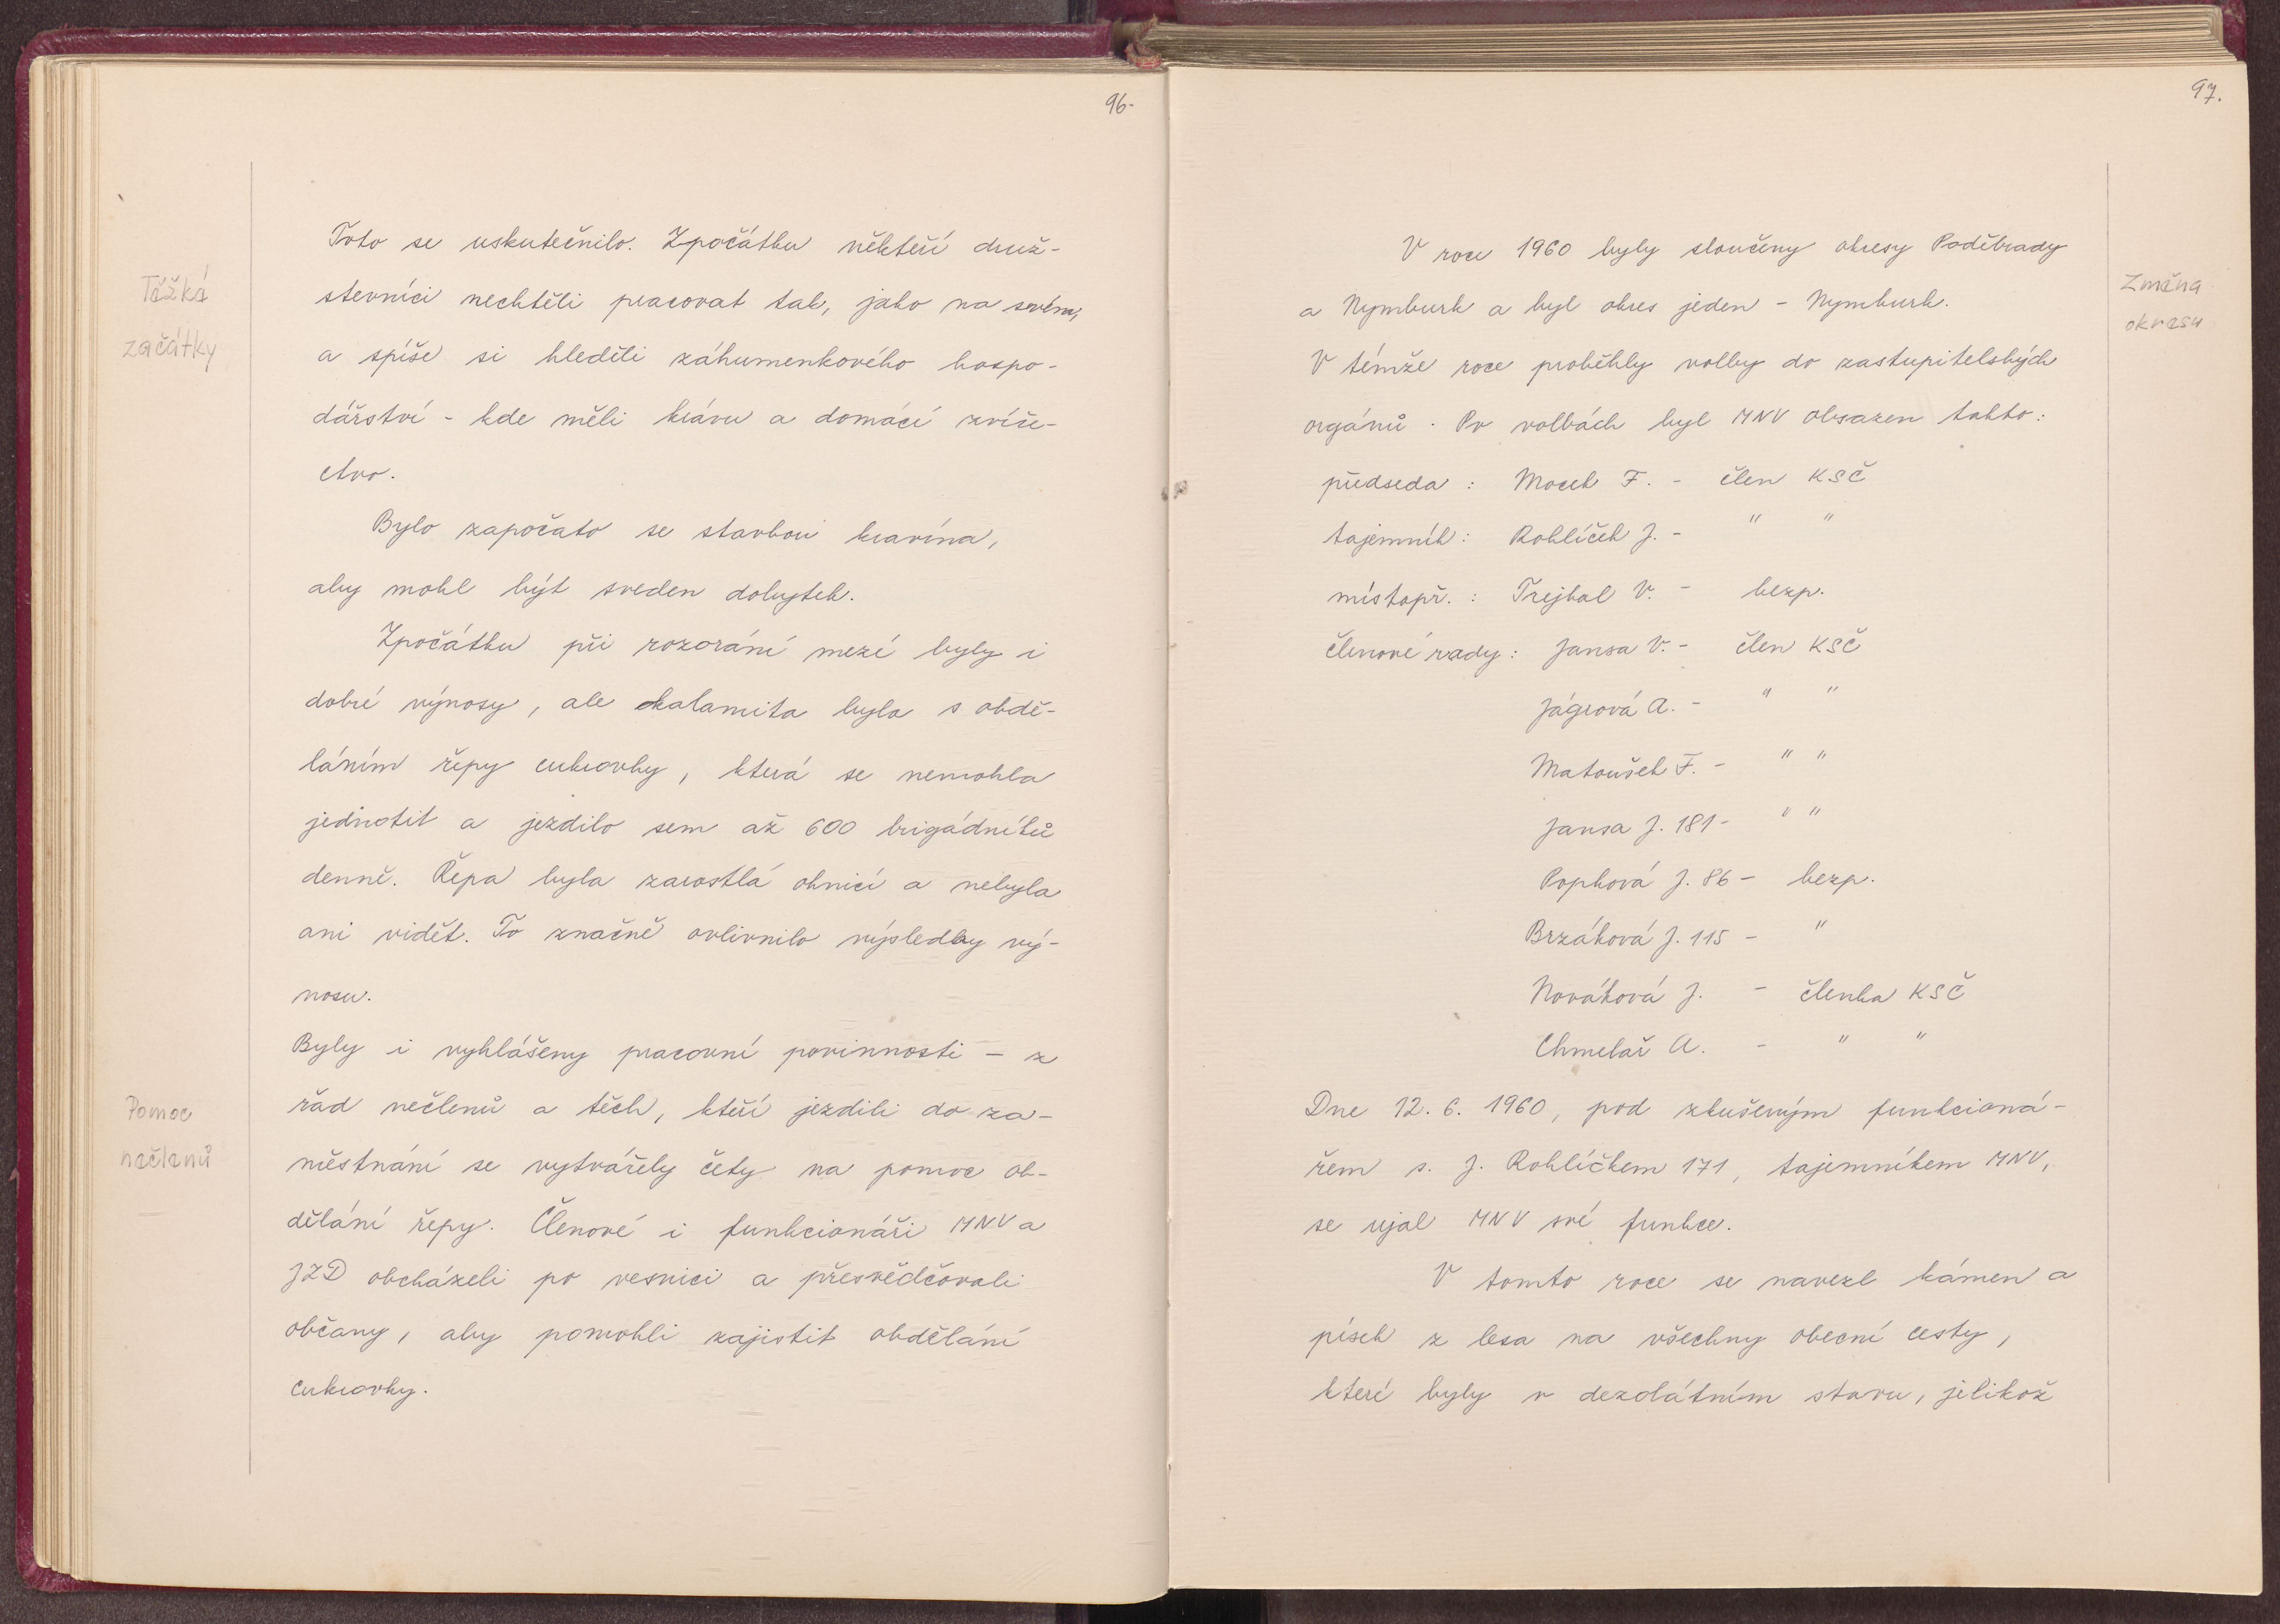 96-
Těžké
začátky
Toto se uskutečnilo. Zpočátku někteří druž-
stevníci nechtěli pracovat tak, jako na svém,
a spíše si hleděli záhumenkového hospo-
dářství - kde měli krávu a domácí zvíře-
ctvo.
Bylo započato se stavbou kravína,
aby mohl být sveden dobytek.
Zpočátku při rozorání mezí byly i
dobré výnosy, ale kalamita byla s obdě-
láním řepy cukrovky, která se nemohla
jednotit a jezdilo sem až 600 brigádníků
denně. Řepa byla zarostlá ohnicí a nebyla
ani vidět. To značně ovlivnilo výsledky vý-
nosu.
Byly i vyhlášeny pracovní povinnosti - z
Pomoc
nečlenů
řad nečlenů a těch, kteří jezdili do za-
městnání se vytvářely čety na pomoc ob-
dělání řepy. Členové i funkcionáři MNV a
JZD obcházeli po vesnici a přesvědčovali
občany, aby pomohli zajistit obdělání
cukrovky.
97.
Změna
okresu
V roce 1960 byly sloučeny okresy Poděbrady
a Nymburk a byl okres jeden - Nymburk.
V témže roce proběhly volby do zastupitelských
orgánů. Po volbách byl MNV obsazen takto:
předseda: Mocek F. - člen KSČ
tajemník: Rohlíček J. - " "
místopř.: Trejbal V. - bezp.
členové rady: Jansa V. - člen KSČ
Jágrová A. - " "
Matoušek F. - " "
Jansa J. 181 - " "
Popková J. 86 - bezp.
Brzáková J. 115 - "
Nováková J. - členka KSČ
Chmelař A. - " "
Dne 12. 6. 1960, pod zkušeným funkcioná-
řem s. J. Rohlíčkem 171, tajemníkem MNV,
se ujal MNV své funkce.
V tomto roce se navezl kámen a
písek z lesa na všechny obecní cesty,
které byly v dezolátním stavu, jelikož